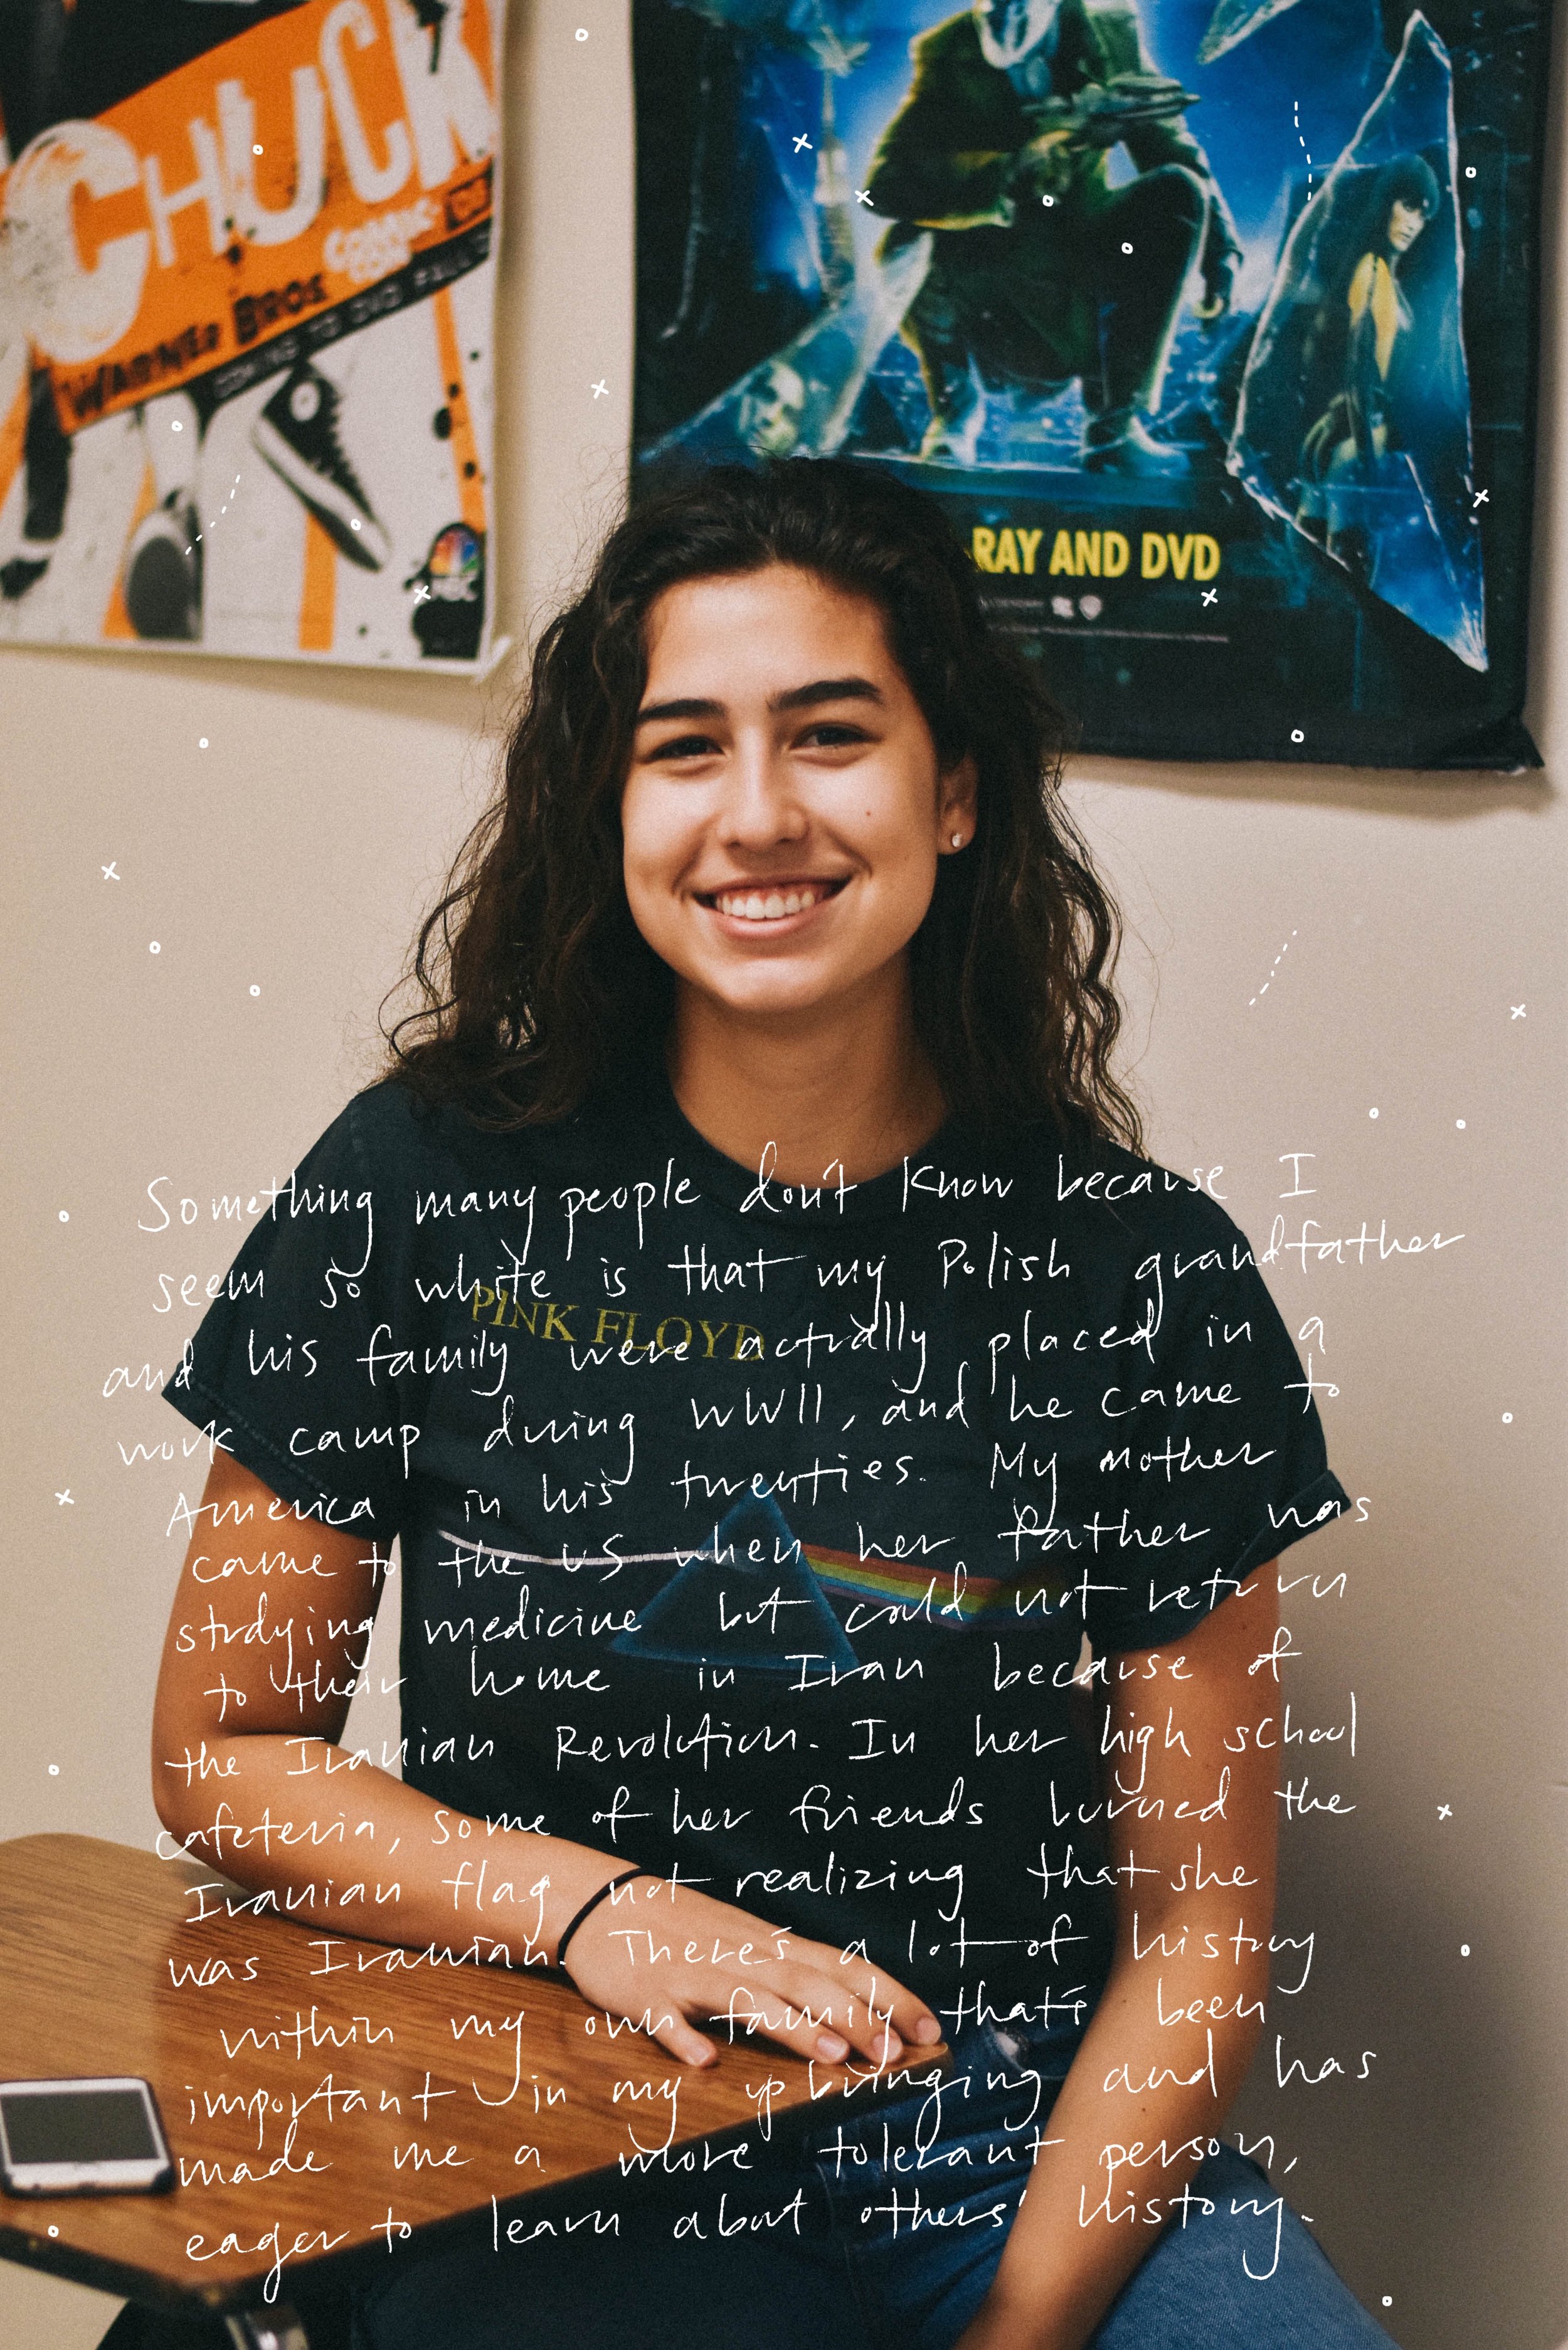 CHUCK
COMIC-CON
WARNER BROS
COMING TO DVD FALL
NBC
RAY AND DVD
PINK FLOYD
Something many people don't know because I
seem so white is that my Polish grandfather
and his family were actually placed in a
work camp during WWII, and he came to
America in his twenties. My mother
came to the US when her father was
studying medicine but could not return
to their home in Iran because of
the Iranian Revolution. In her high school
cafeteria, some of her friends burned the
Iranian flag not realizing that she
was Iranian. There's a lot of history
within my own family that's been
important in my upbringing and has
made me a more tolerant person,
eager to learn about others' history.